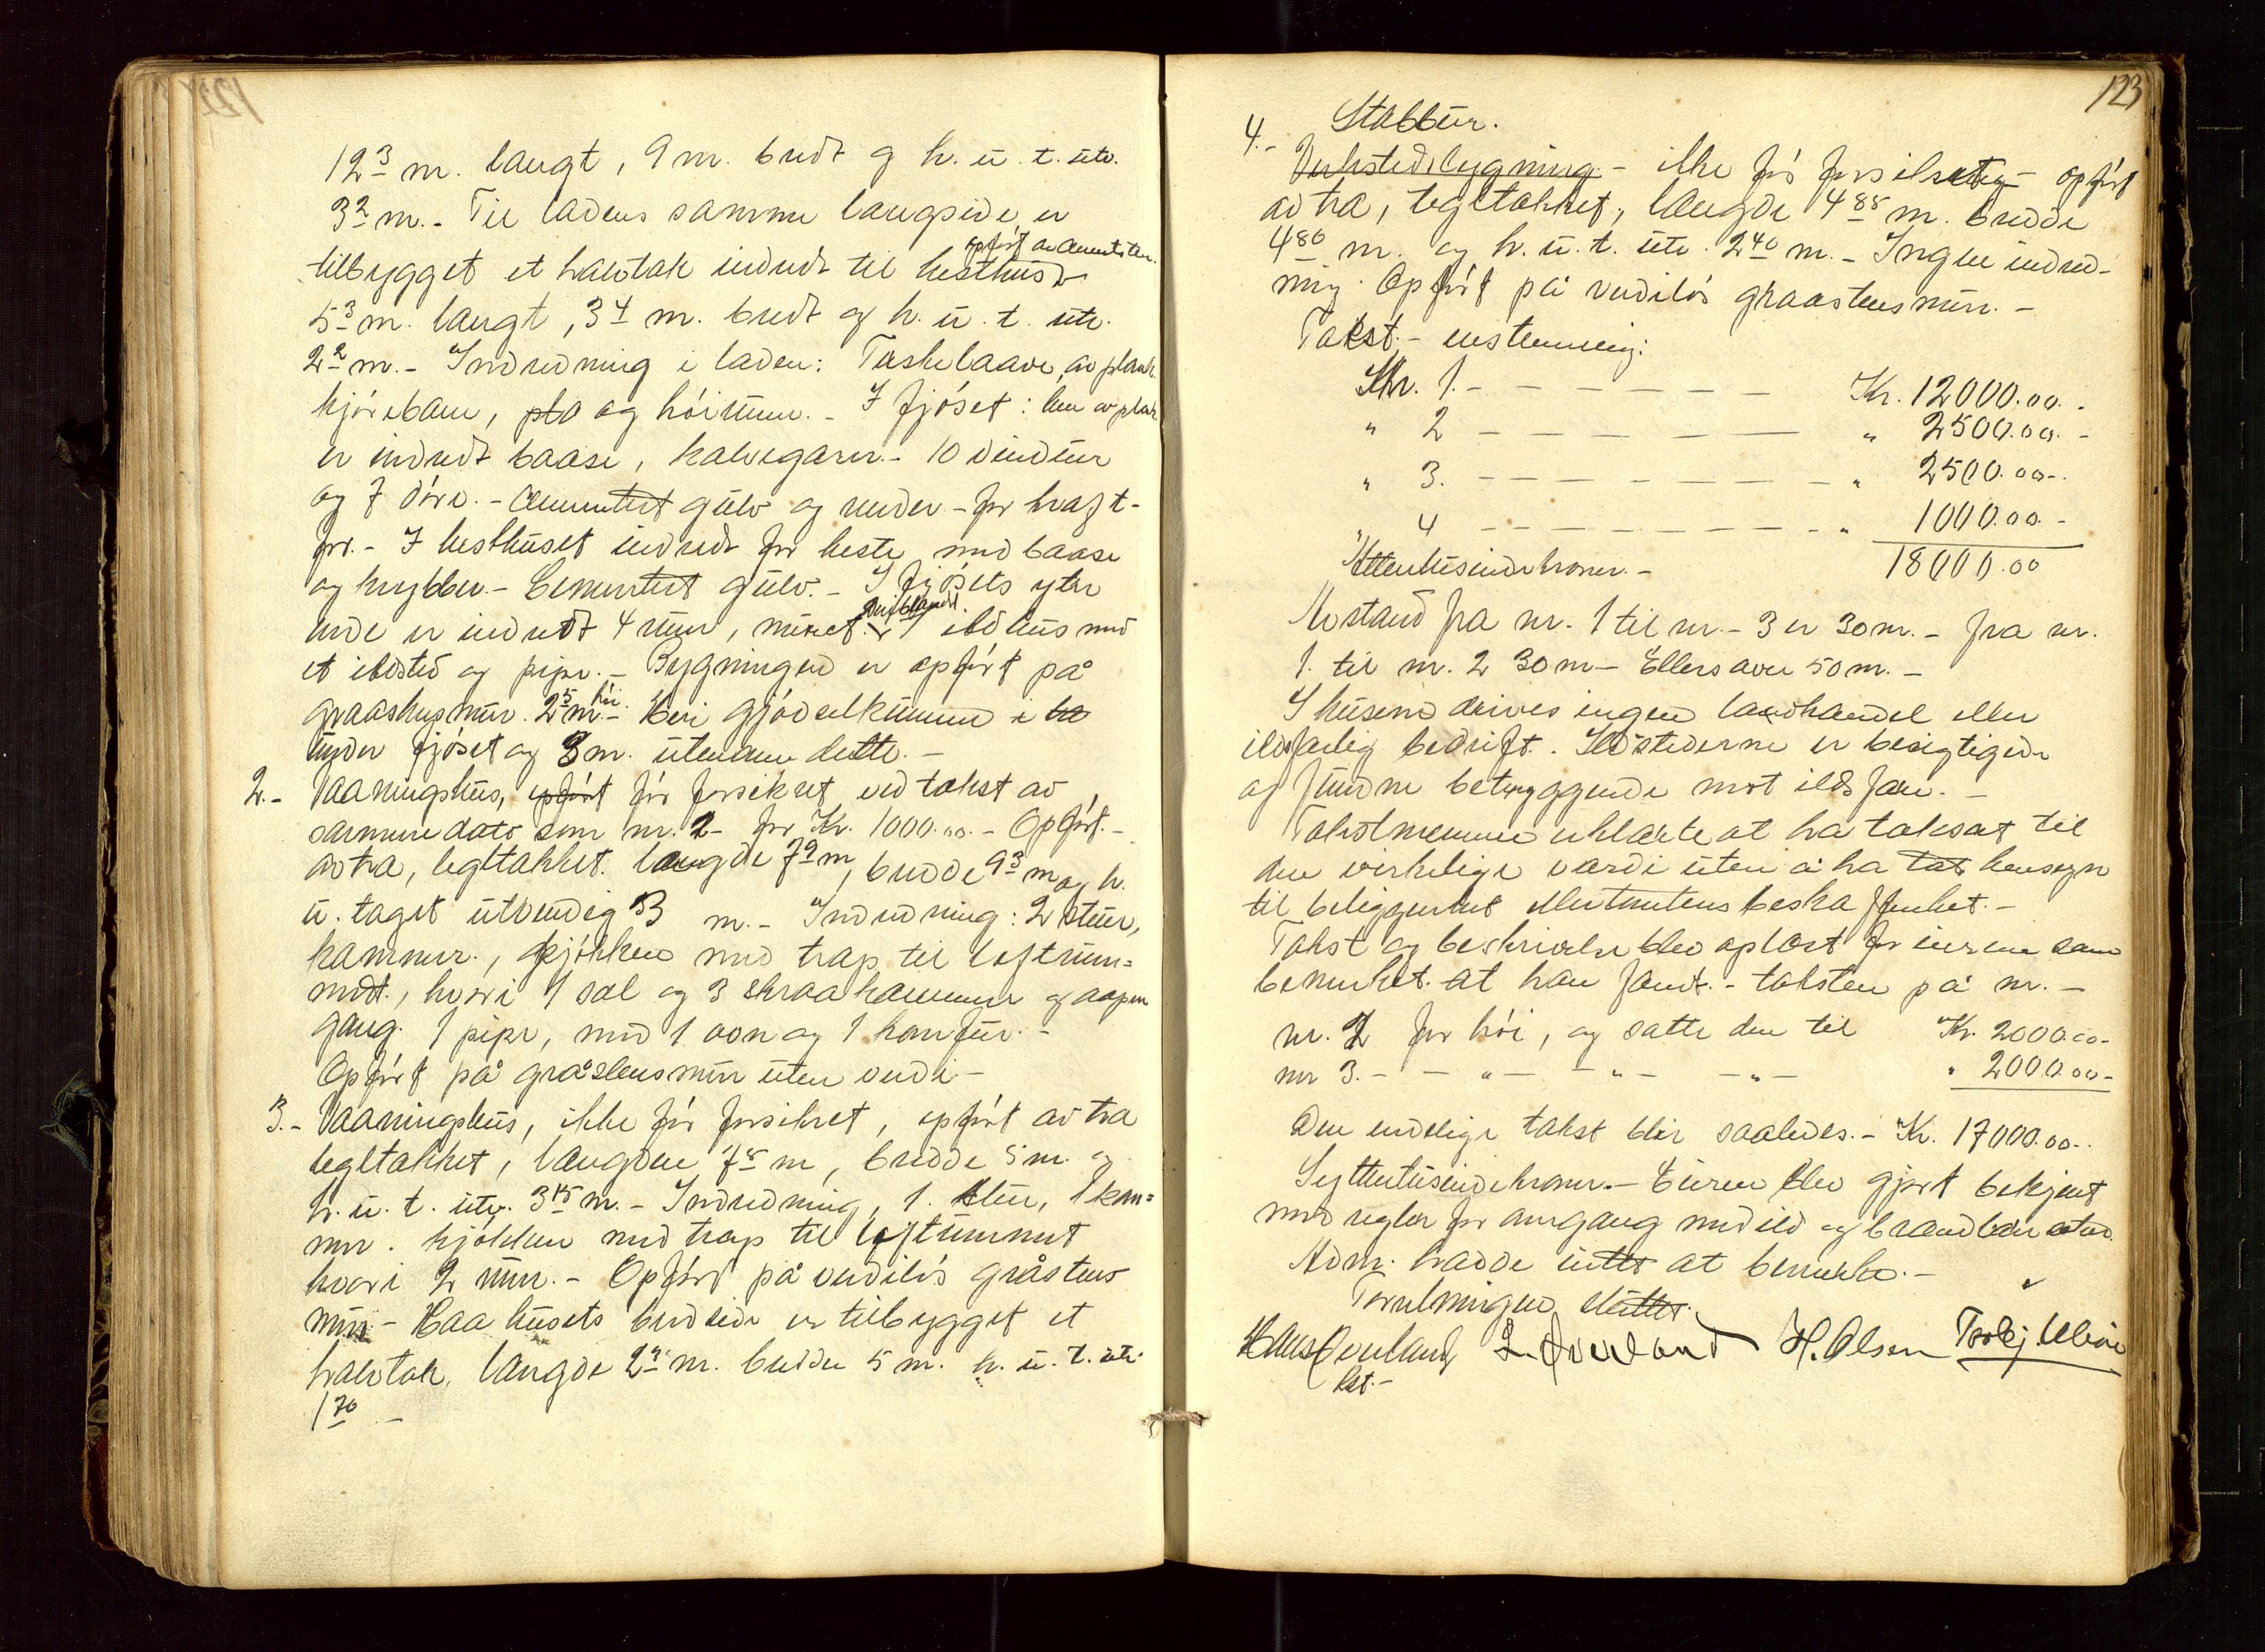 12 3 m. langt, 9 m. bredt og h. u. t. utv.
3 2 m. - Til ladens samme langside er
opført av cementsten.
tilbygget et halvtak indredt til hesthus
5 3 m. langt, 3 4 m. bredt og h. u. t. utv.
2 2 m. - Indredning i laden: Tæskelaave, av plank.
kjørebane, og høirum. - I fjøset:
er indredt baase, kalvegarer. - 10 vinduer
og 7 døre. - Cementert gulv og render - for kraft-
for. - I hesthuset indredt for heste med baase
og krybber. - Cementert gulv. - I fjøsets ytre
ende er indredt 4 rum, 1 ildhus med
et ildsted og pipe. - Bygningen er opført på
graastensmur. 2 5 m. høi. - Heri gjødselkummen
under fjøset og 3 m. utenom dette. -
2. - Vaaningshus, før forsikret ved takst av
samme dato som nr. 2 - for Kr. 1000.00. - Opført. -
av træ, tegltækket. længde 7 9 m, bredde 9 3 m og h.
u. taget utvendig 3 3 m. - Indredning: 2 stuer,
kammer., kjøkken med trap til loftrum=
met., hvori 1 sal og 3 skraakammer og aapen
gang. 1 pipe, med 1 ovn og 1 komfur. -
Opført på gråstensmur uten verdi -
3. - Vaaningshus, ikke før forsikret, opført av træ
tegltækket, længden 7 5 m, bredde 5 m. og
h. u. t. utv. 3 15 m. - Indredning, 1. stue, 1 kam=
mer. kjøkken med trap til loftrummet
hvori 2 rum. - Opført på verdiløs gråstens
mur - Paa husets bredside er tilbygget et
halvtak, længde 2 m. bredde 5 m. h. u. t. utv.
1 70 -
123
Stabbur.
4. - Verkstedsbygning - ikke før - opført
av træ, tegltækket, længde 4 85 m. bredde
4 80 m. og h. u. t. utv. 2 40 m. - Ingen indred-
ning. Opført på verdiløs graastensmur. -
Takst. - enstemmig:
Nr. 1. - - - - - - Kr. 12000.00. -
" 2 - - - - - - " 2500.00. -
" 3. - - - - - - - " 2500.00 -.
" 4 - - - - - - - - " 1000.00. -
Attentusindekroner. - 18000.00
Avstand fra nr. 1 til nr. - 3 er 30 m. - fra nr.
1. til nr. 2 30 m - Ellers over 50 m. -
I husene drives ingen landhandel eller
ildsfarlig bedrift. Ildstederne er besigtigede
og fundne betryggende mot ildsfare. -
Takstmennene erklærte at ha taksert til
den virkelige værdi uten å ha hensyn
til beliggenhet eller tomtens beskaffenhet. -
Takst og beskrivelse blev oplæst for eieren som
bemerket at han fandt. - taksten på nr. -
nr. 2 for høi, og satte den til Kr. 2000.00 -
nr 3. - - " - - " - - " - " 2000.00 -
Den endelige takst blir saaledes. - Kr. 17000.00 -.
Syttentusindekroner. - Eieren blev gjort bekjent
med regler for omgang med ild og
Adm. hadde intet at bemerke. -
Forretningen sluttet.
Hans Overland L. Øverland H. Olsen
lst. -